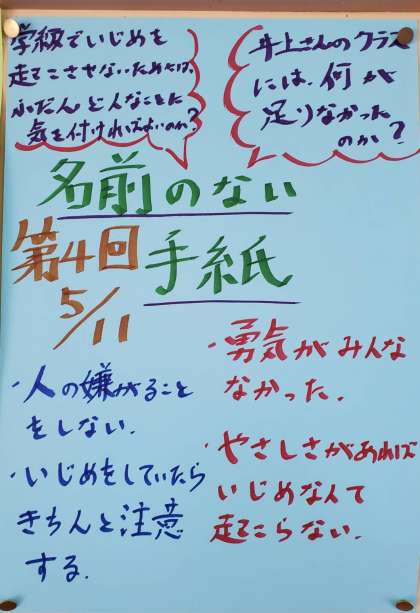 学級でいじめを
起こさせないためには、
ふだんどんなことに
気を付ければよいのか？
井上さんのクラス
には、何が
足りなかった
のか？
名前のない
手紙
第4回
5/11
・人の嫌がること
をしない.
・いじめをしていたら
きちんと注意
する.
・勇気がみんな
なかった.
・やさしさがあれば
いじめなんて
起こらない.